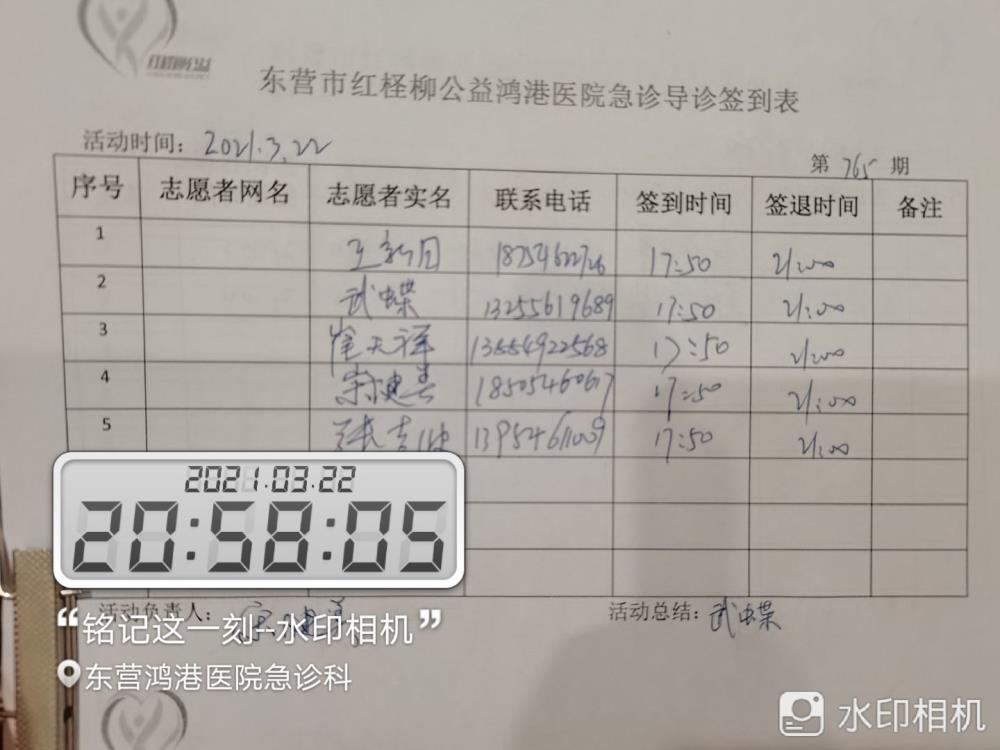 东营市红柽柳公益鸿港医院急诊导诊签到表
活动时间：2021.3.22
第 765 期
序号 志愿者网名 志愿者实名 联系电话 签到时间 签退时间 备注
1 王新月 17:50 21:00
2 武蝶 13255619689 17:50 21:00
3 崔天祥 13554922568 17:50 21:00
4 18505460617 17:50 21:00
5 17:50 21:00
2021.03.22
20:58:05
活动负责人：
活动总结：武蝶
“铭记这一刻--水印相机”
东营鸿港医院急诊科
水印相机